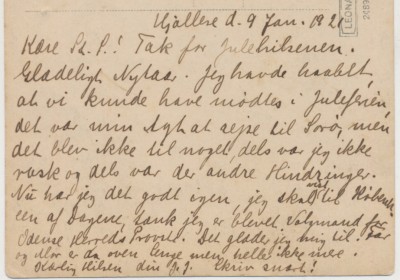 Hjallese d. 9 Jan. 192
Kære St. P.! Tak for Julehilsenen.
Glædeligt Nytaar. Jeg havde haabet,
at vi kunde have mødtes i Juleferien,
det var min Agt at rejse til Sorø, men
det blev ikke til noget, dels var jeg ikke
rask og dels var der andre Hindringer.
Nu har jeg det godt igen, jeg skal til Københ
een af Dagene, tænk jeg er blevet Valgmand for
Odense Herreds Provsti. Det glæder jeg mig til. Far
og Mor er da oven Senge men heller ikke mere.
Kærlig Hilsen din Skriv snart!
LEONA